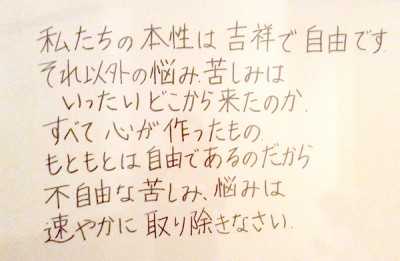 私たちの本性は吉祥で自由です.
それ以外の悩み.苦しみは
いったいどこから来たのか.
すべて心が作ったもの.
もともとは自由であるのだから
不自由な苦しみ、悩みは
速やかに取り除きなさい.